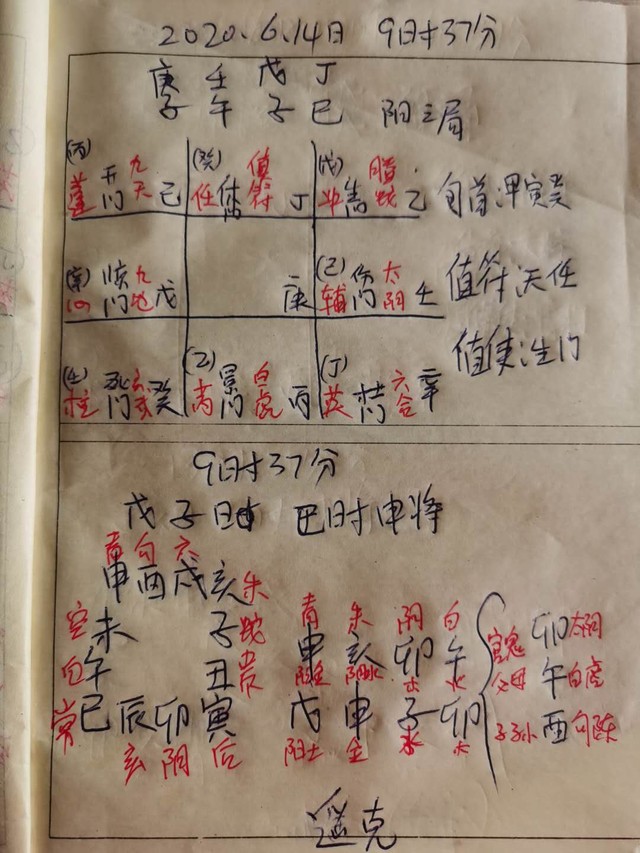 2020.6.14日 9时37分
庚 壬 戊 丁
子 午 子 巳 阳三局
(丙) 九 (癸) 值 (戊) 腾
蓬 开门 天 己 任 休门 符 丁 冲 伤门 蛇 乙 旬首:甲寅癸
(辛) 九 (己) 太
心 惊门 地 戊 庚 辅 伤门 阴 壬 值符:天任
值使:生门
(壬) 玄 (乙) 白 (丁) 六
柱 死门 武 癸 芮 景门 虎 丙 英 杜门 合 辛
9时37分
戊子日 巳时申将
青 勾 六
申 酉 戌 亥 朱
空 未 子 蛇 青 朱 阴 白 官鬼 卯 太阴
白 午 丑 贵 申 亥 卯 午 父母 午 白虎
阳金 阳水 木 火
常 巳 辰 卯 寅 戊 申 子 卯 子孙 酉 勾陈
玄 阴 后 阳土 金 水 木
遥克